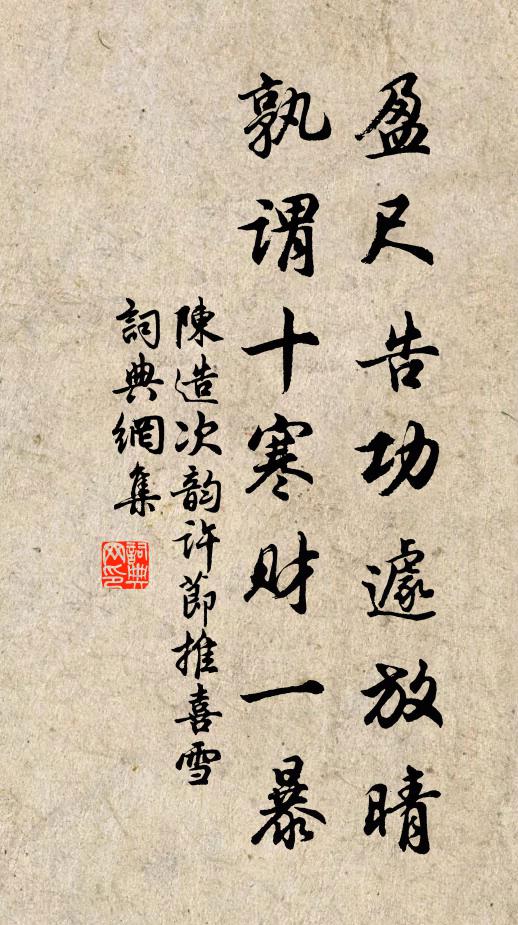 盈尺告功遽放晴
孰谓十寒财一暴
陳造次韵许節推喜雪
詞典網集
詞典
网印